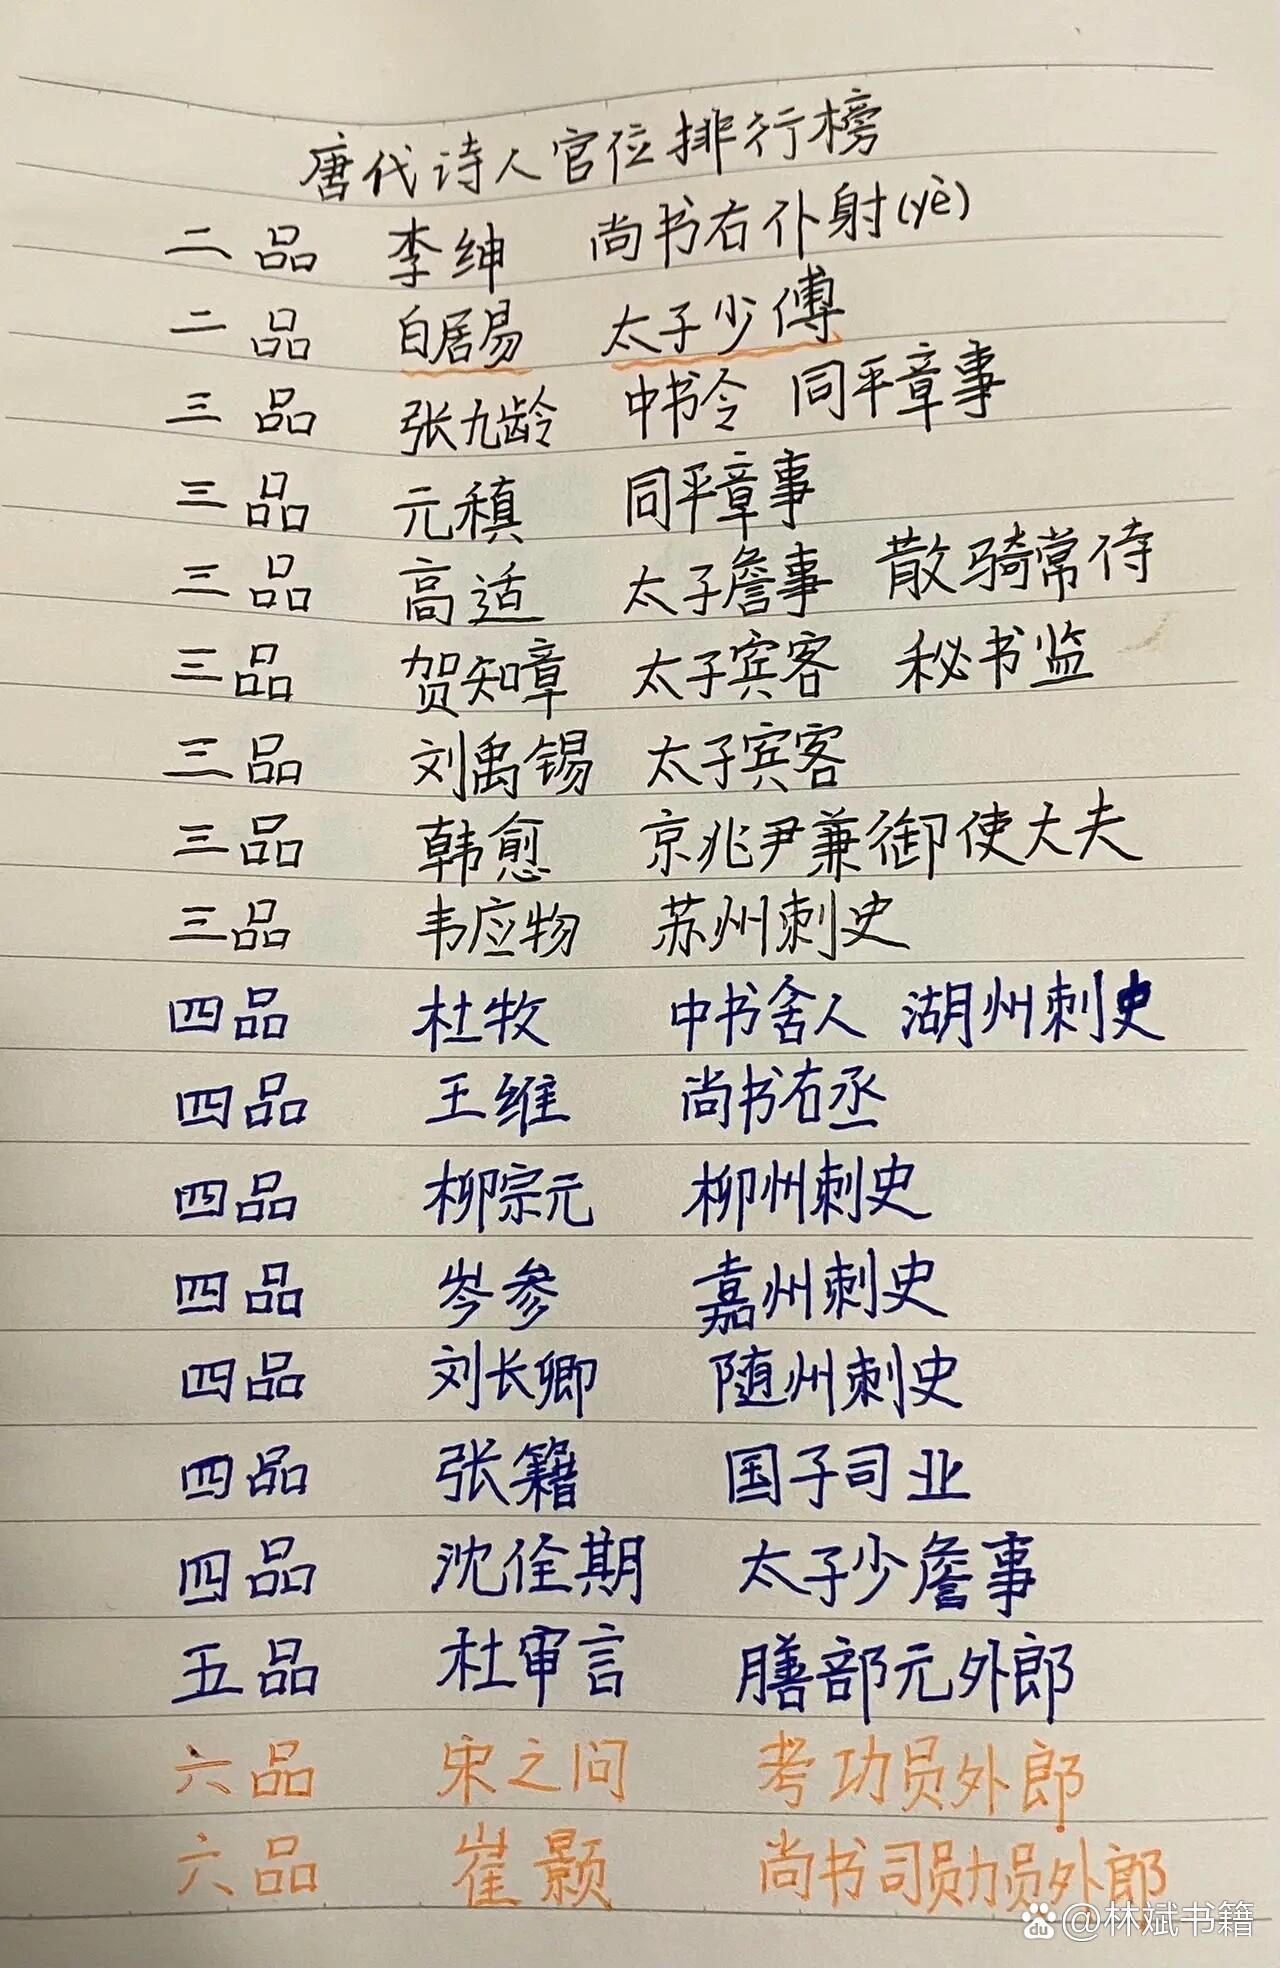 唐代诗人官位排行榜
二品 李绅 尚书右仆射(yè)
二品 白居易 太子少傅
三品 张九龄 中书令 同平章事
三品 元稹 同平章事
三品 高适 太子詹事 散骑常侍
三品 贺知章 太子宾客 秘书监
三品 刘禹锡 太子宾客
三品 韩愈 京兆尹兼御使大夫
三品 韦应物 苏州刺史
四品 杜牧 中书舍人 湖州刺史
四品 王维 尚书右丞
四品 柳宗元 柳州刺史
四品 岑参 嘉州刺史
四品 刘长卿 随州刺史
四品 张籍 国子司业
四品 沈佺期 太子少詹事
五品 杜审言 膳部元外郎
六品 宋之问 考功员外郎
六品 崔颢 尚书司勋员外郎
du @林斌书籍